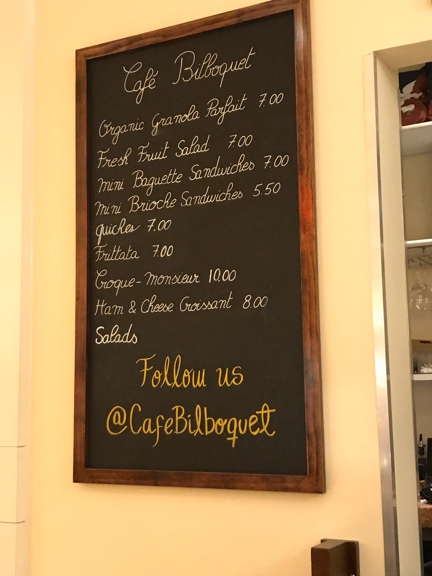 Café Bilboquet
Organic Granola Parfait 7.00
Fresh Fruit Salad 7.00
Mini Baguette Sandwiches 7.00
Mini Brioche Sandwiches 5.50
quiches 7.00
Frittata 7.00
Croque-Monsieur 10.00
Ham & Cheese Croissant 8.00
Salads
Follow us
@CafeBilboquet